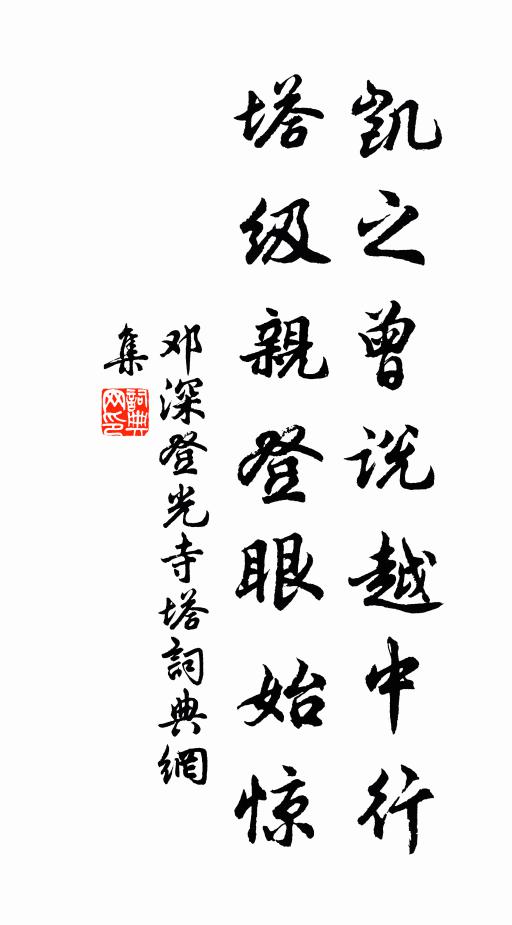 凯之曾说越中行
塔级親登眼始惊
邓深登光寺塔詞典網
集
詞典
网印